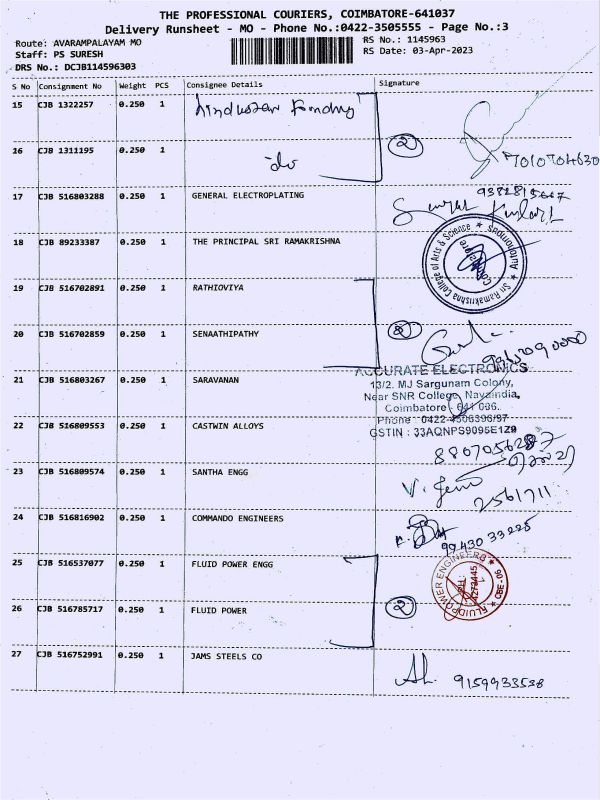 THE PROFESSIONAL COURIERS, COIMBATORE-641037
Delivery Runsheet - MO - Phone No.:0422-3505555 - Page No.:3
Route: AVARAMPALAYAM MO
RS No.: 1145963
Staff: PS SURESH
RS Date: 03-Apr-2023
DRS No.: DCJB114596303
S No Consignment No Weight PCS Consignee Details Signature
15 CJB 1322257 0.250 1
16 CJB 1311195 0.250 1 do
2
17 CJB 516803288 0.250 1 GENERAL ELECTROPLATING
18 CJB 89233387 0.250 1 THE PRINCIPAL SRI RAMAKRISHNA
Sri Ramakrishna College of Arts & Science
Autonomous
Coimbatore
19 CJB 516702891 0.250 1 RATHIOVIYA
20 CJB 516702859 0.250 1 SENAATHIPATHY
ACCURATE ELECTRONICS
21 CJB 516803267 0.250 1 SARAVANAN
13/2. MJ Sargunam Colony,
Near SNR College, Navaindia,
Coimbatore - 641 006.
22 CJB 516809553 0.250 1 CASTWIN ALLOYS
Phone : 0422-4506396/97
GSTIN : 33AQNPS9095E1Z9
23 CJB 516809574 0.250 1 SANTHA ENGG
2561711
24 CJB 516816902 0.250 1 COMMANDO ENGINEERS
99430 33225
25 CJB 516537077 0.250 1 FLUID POWER ENGG
FLUIDPOWER ENGINEERS
CBE-06
26 CJB 516785717 0.250 1 FLUID POWER
2
27 CJB 516752991 0.250 1 JAMS STEELS CO
9159933538